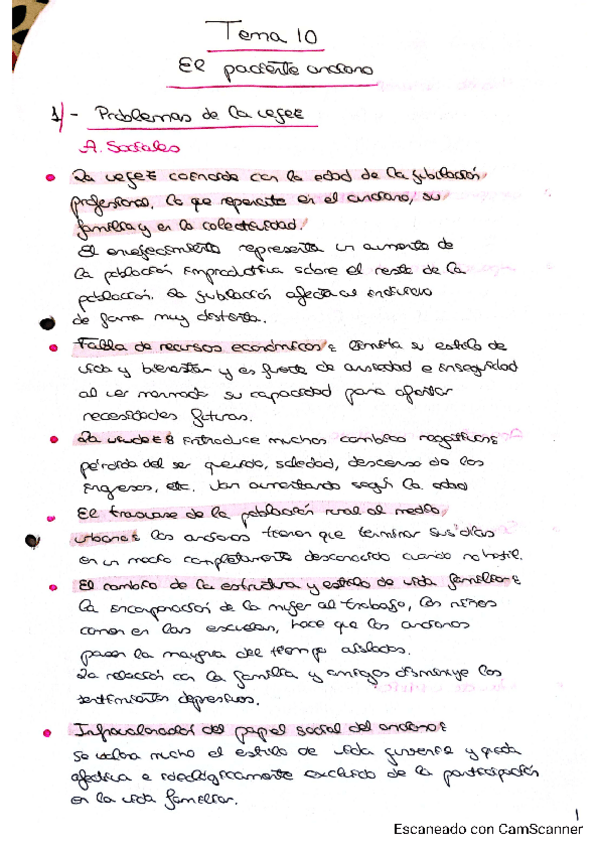 Tema 10
El paciente anciano
1) - Problemas de la vejez
A. Sociales
La vejez coincide con la edad de la jubilación
profesional, lo que repercute en el anciano, su
familia y en la colectividad.
El envejecimiento representa un aumento de
la población improductiva sobre el resto de la
población. La jubilación afecta al individuo
de forma muy distinta.
Falta de recursos económicos: limita su estilo de
vida y bienestar y es fuente de ansiedad e inseguridad
al ver mermada su capacidad para afrontar
necesidades futuras.
La viudez: introduce muchos cambios negativos:
pérdida del ser querido, soledad, descenso de los
ingresos, etc. Van aumentando según la edad
El trasvase de la población rural al medio
urbano: los ancianos tienen que terminar sus días
en un medio completamente desconocido cuando no hostil.
El cambio de la estructura y estilo de vida familiar:
la incorporación de la mujer al trabajo, los niños
comen en las escuelas, hace que los ancianos
pasen la mayoría del tiempo aislados.
La relación con la familia y amigos disminuye los
sentimientos depresivos.
Infravaloración del papel social del anciano:
Se valora mucho el estilo de vida juvenil y queda
afectiva e ideológicamente excluido de la participación
en la vida familiar.
1
Escaneado con CamScanner